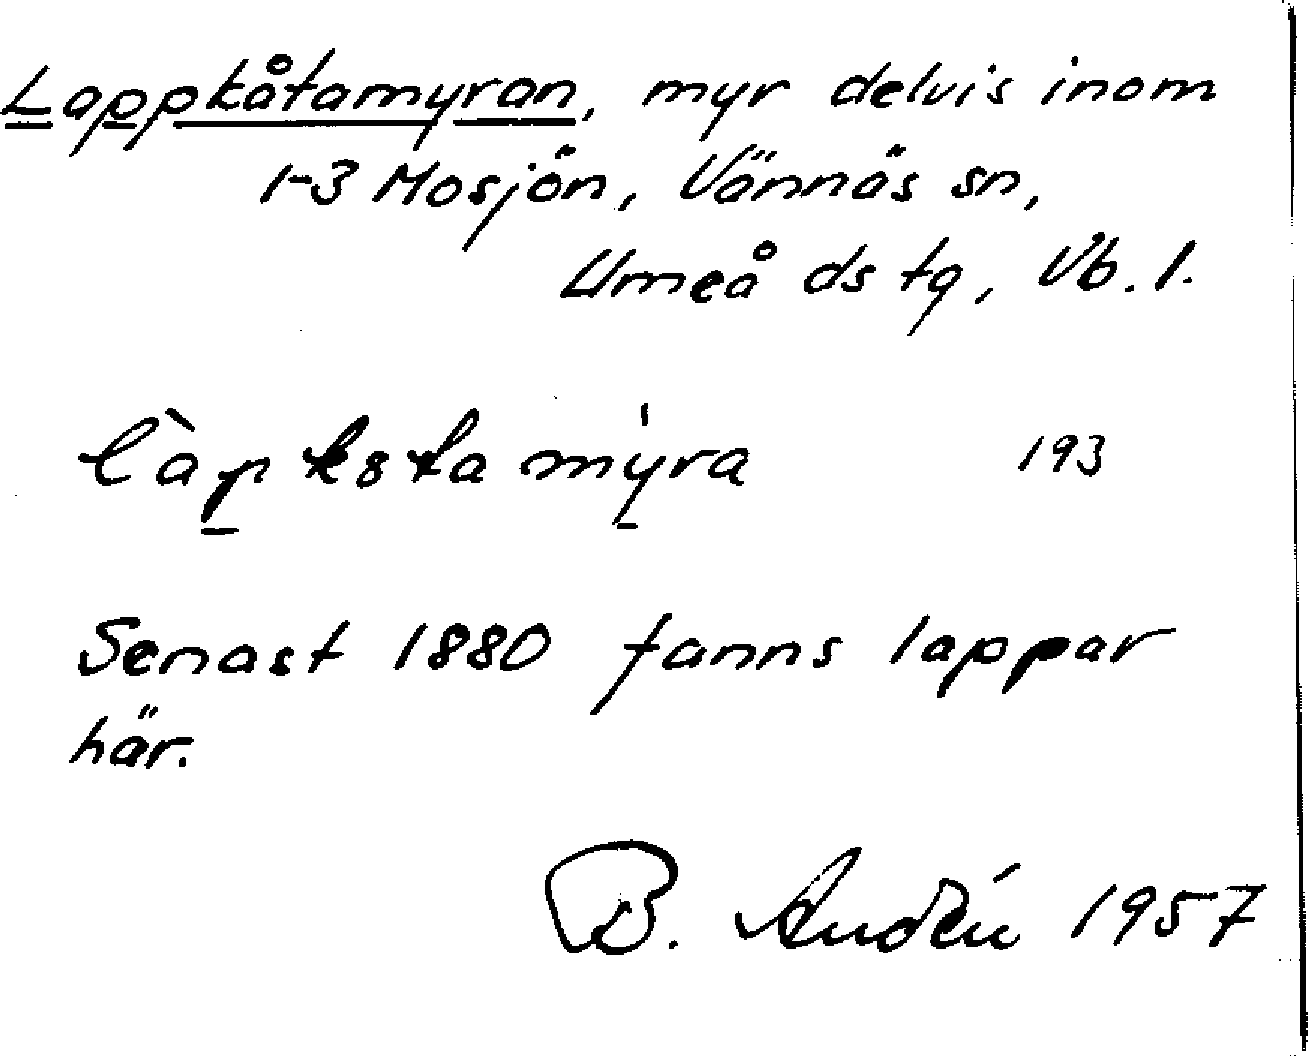 Lappkåtamyran, myr delvis inom
1-3 Mosjön, Vännäs sn,
Umeå ds tg, Vb. l.
193
Senast 1880 fanns lappar
här.
B. Andén 1957